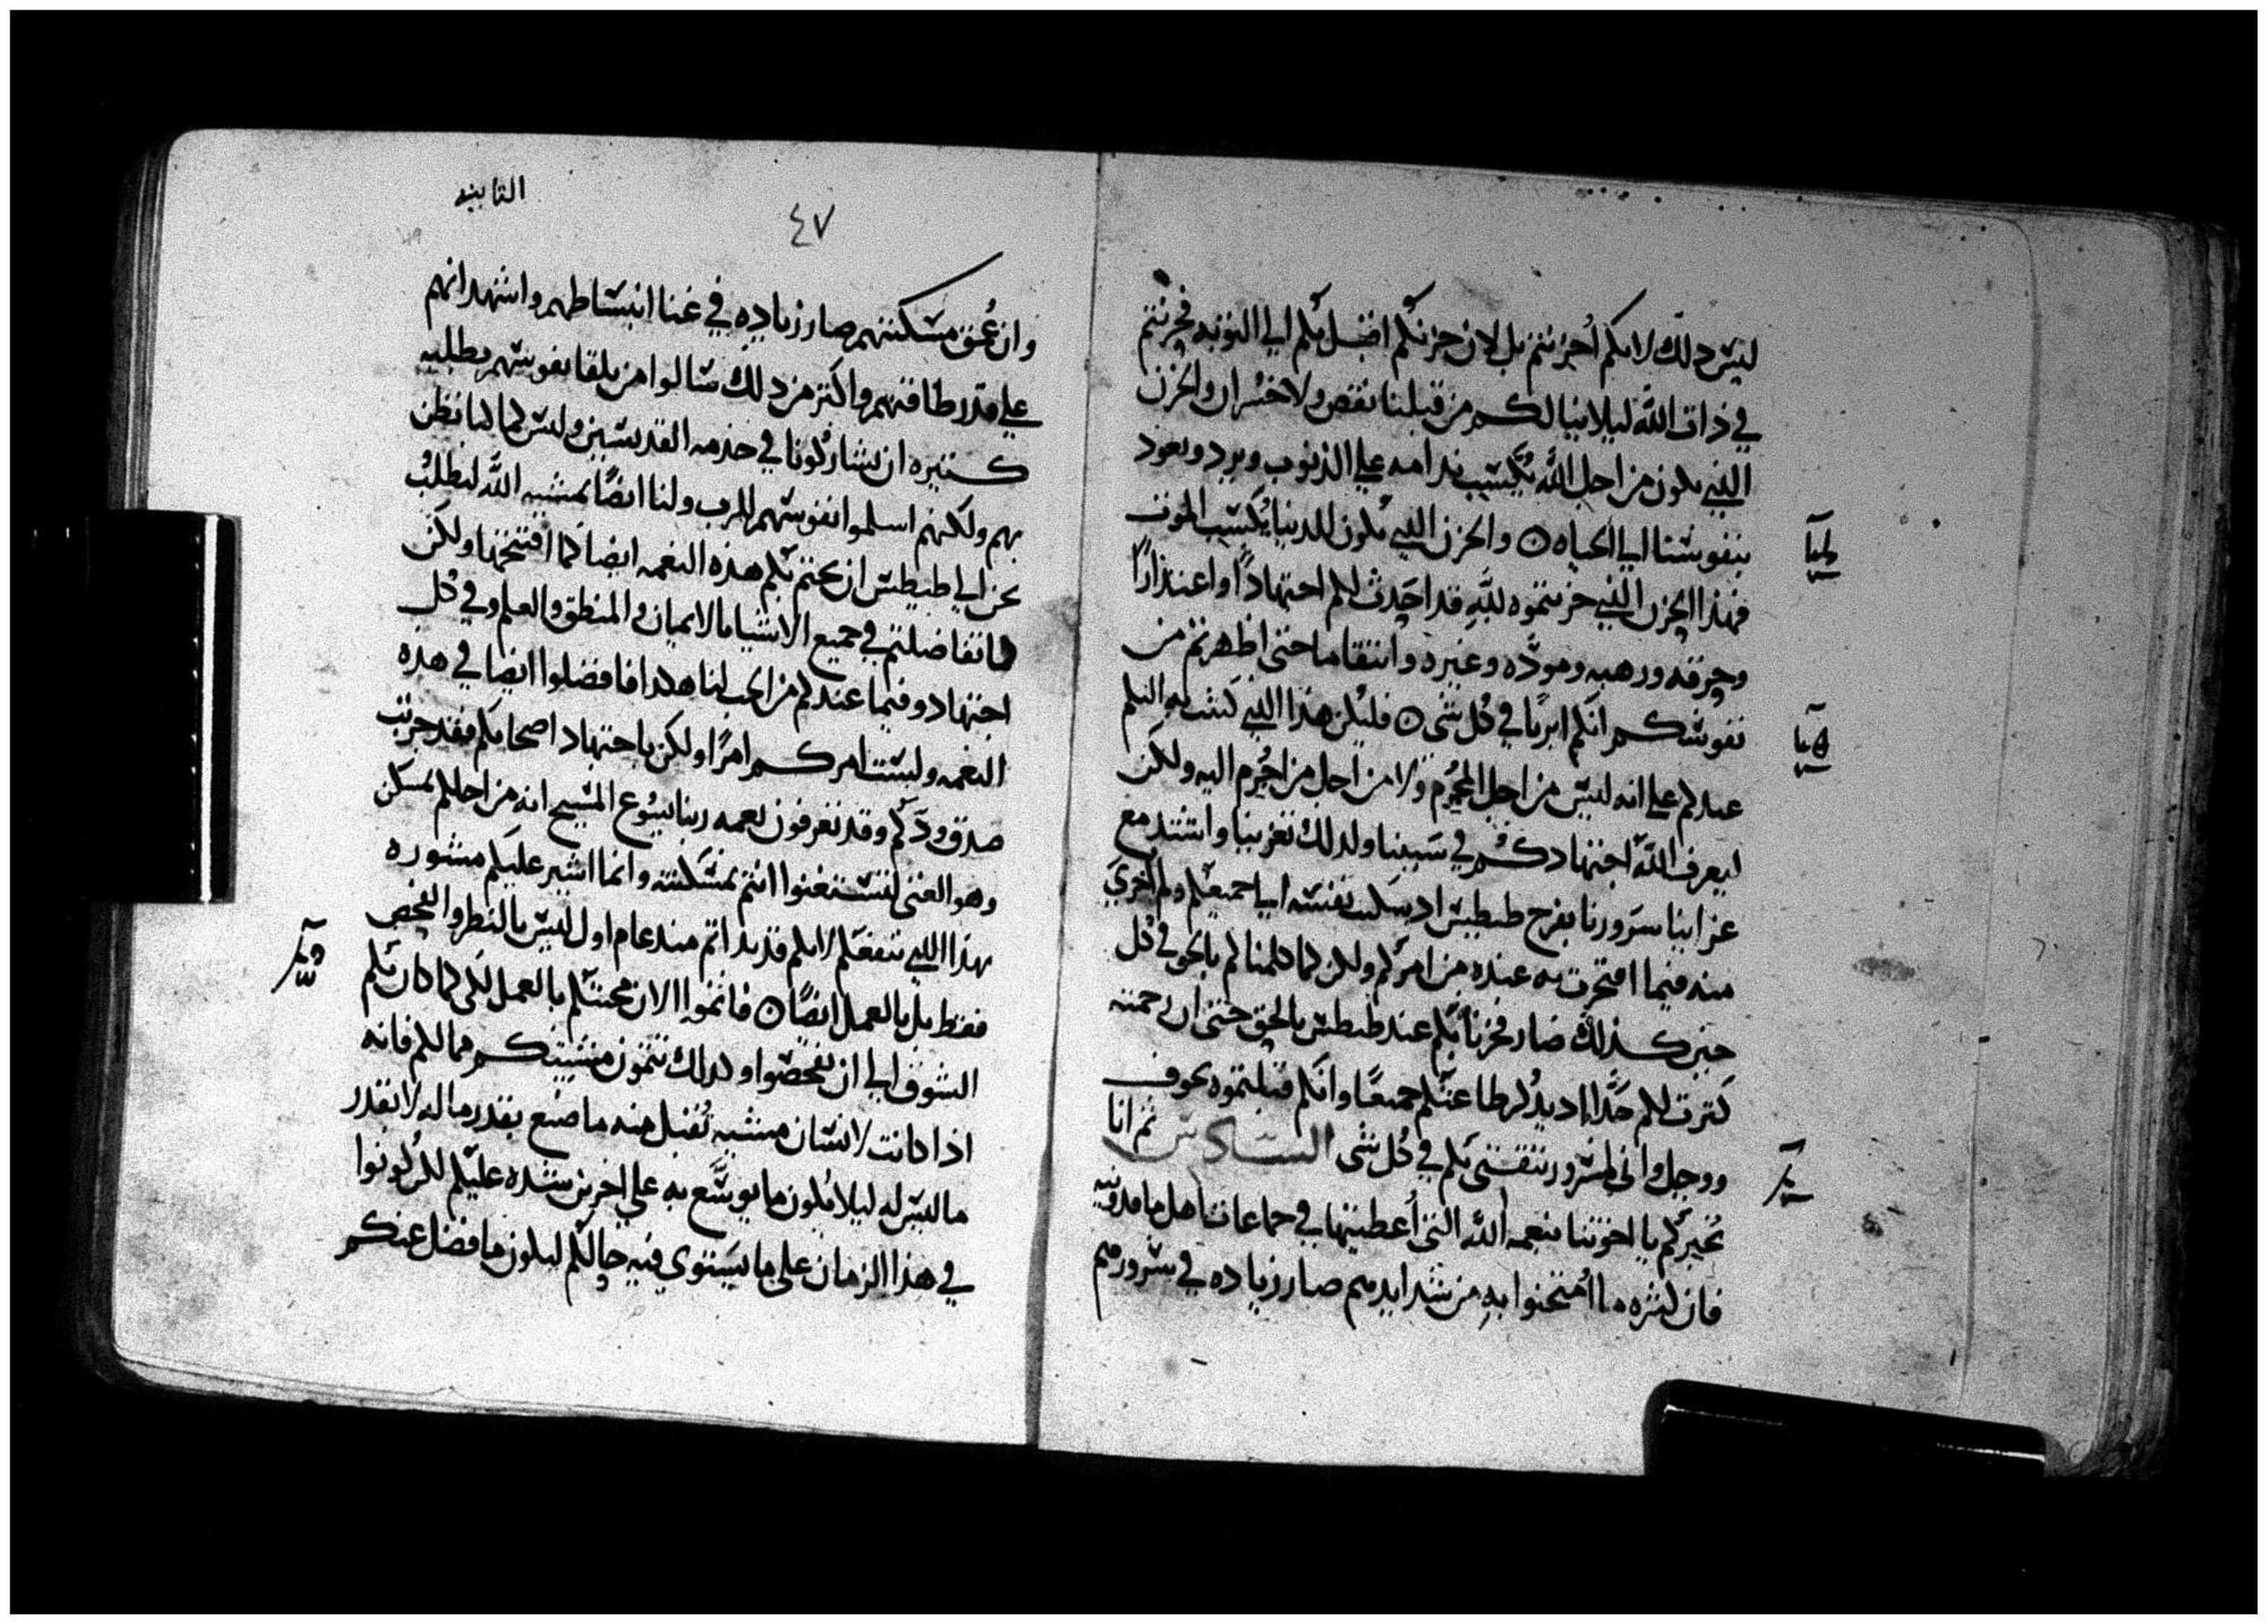 ليس ذلك لانكم أحزنتم بل لان حزنكم اقبل بكم الي التوبه فحزنتم
في ذات الله ليلا ينالكم من قبلنا نقص ولا خسران والحزن
الذي يكون من اجل الله يكسب ندامه علي الذنوب ويرد ويعود
بنفوسنا الي الحياه ن والحزن الذي يكون للدنيا يكسب الموت
فهذا الحزن الذي حزنتموه لله قد احدث لكم اجتهادًا واعتذارًا
وحرقه ورهبه ومودّه وغيره وانتقاما حتى اظهرتم من
نفوسكم انكم ابريا في كل شي ن فليكن هذا الذي كتبت به اليكم
عندكم علي انه ليس من اجل المجرم ولا من اجل من اجرم اليه ولكن
ليعرف الله اجتهادكم في سببنا ولذلك تعزينا واشتد مع
عزاينا سرورنا بفرح طيطس اذ سكنت نفسه الي جميعكم ولم اخزي
منه فيما افتخرت به عنده من امركم ولكن كما كلمناكم بالحق في كل
حين كذلك صار فخرنا بكم عند طيطس بالحق حتى ان رحمته
كترت لكم جدًا اذ يذكر طاعتكم جميعًا وانكم قبلتموه بخوف
ووجل واني لمسرور بثقتي بكم في كل شي السادس ثم انا
نخبركم يا اخوتنا بنعمه الله التي أعطيتها في جماعات اهل ماقدونيه
فان كثره ما امتحنوا به من شدايدهم صار زياده في سرورهم
التانيه
٤٧
وان عُمق مسكنتهم صار زياده في غنا انبساطهم واشهد انهم
علي قدر طاقتهم واكتر من ذلك سالوا من تلقا نفوسهم بطلبه
كتيره ان يشاركونا في خدمه القديسين وليس كما كنا نظن
بهم ولكنهم اسلموا نفوسهم للرب ولنا ايضًا بمشيه الله لنطلب
نحن الي طيطس ان يختم بكم هذه النعمه ايضا كما افتتحها ولكن
كما تفاضلتم في جميع الاشيا بالايمان والمنطق والعلم وفي كل
اجتهاد وفيما عندكم من الحب لنا هكذا فافضلوا ايضا في هذه
النعمه ولست امركم امرًا ولكن باجتهاد اصحابكم فقد جربت
صدق ودّكم وقد تعرفون نعمه ربنا يسوع المسيح انه من اجلكم تمسكن
وهو الغني لتستغنوا انتم بمسكنته وانما اشير عليكم مشوره
بهذا الذي ينفعكم لانكم قد بداتم منذ عام اول ليس بالنظر والفحص
فقط بل بالعمل ايضًا ن فاتموا الان محبتكم بالعمل لكي كما كان بكم
الشوق الي ان تفحصوا وكذلك تتمون مشيتكم مما لكم فانه
اذا كانت لانسان مشيه تُقبل منه ما صنع بقدر ما له لا بقدر
ما ليس له ليلا يكون ما يوسّع به علي اخرين شده عليكم لكن كونوا
في هذا الزمان علي ما يستوي فيه حالكم ليكون ما فضل عنكم